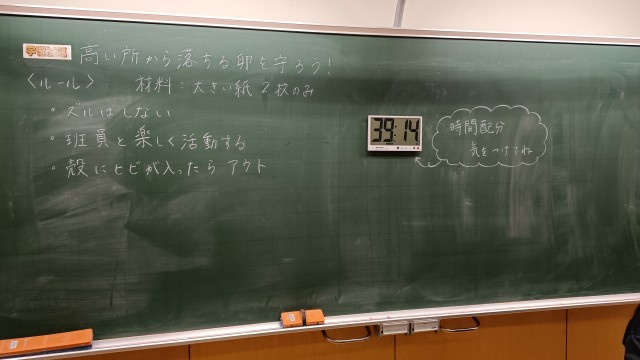 学習課題
高い所から落ちる卵を守ろう!
〈ルール〉 材料:大きい紙2枚のみ
・ズルはしない
・班員と楽しく活動する
・殻にヒビが入ったらアウト
39:14
時間配分
気をつけてね